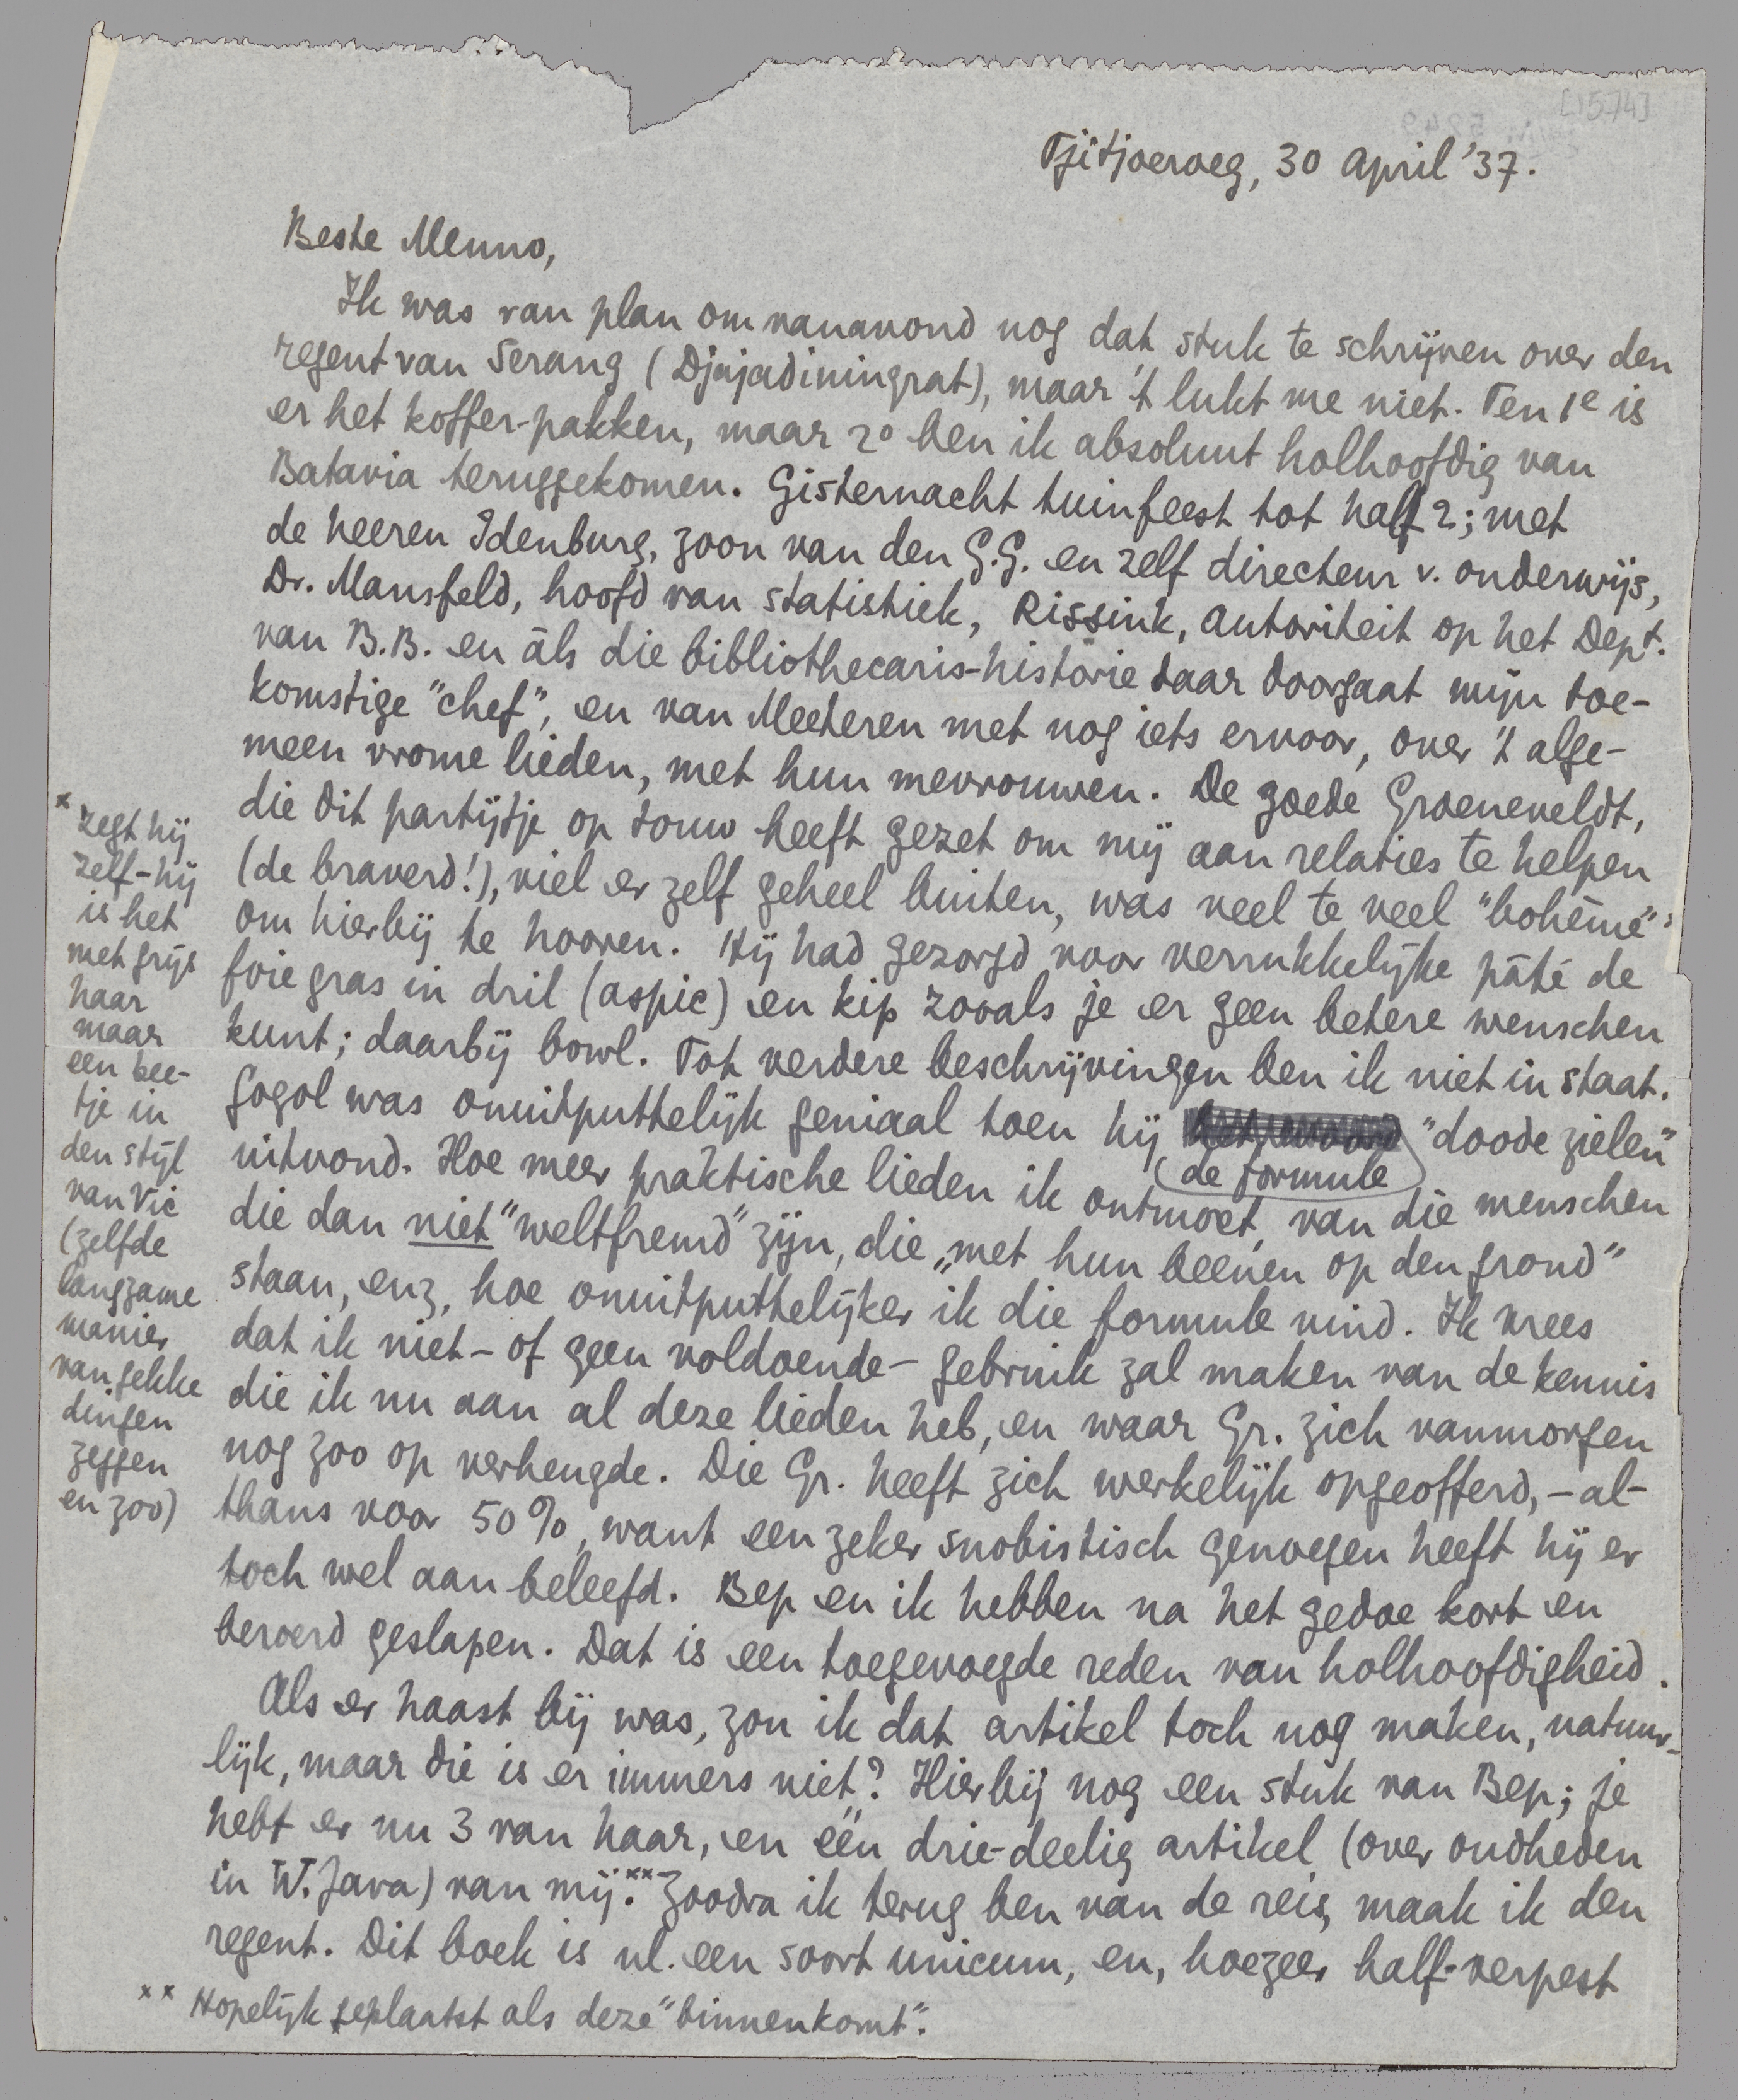 [1574]
Tjitjoeroeg, 30 April '37.
Beste Menno,
Ik was van plan om vanavond nog dat stuk te schrijven over den
regent van Serang (Djajadiningrat), maar 't lukt me niet. Ten 1e is
er het koffer-pakken, maar 2° ben ik absoluut holhoofdig van
Batavia teruggekomen. Gisternacht tuinfeest tot half 2; met
de heeren Idenburg, zoon van den G.G. en zelf directeur v. onderwijs,
Dr. Mansfeld, hoofd van statistiek, Rissink, autoriteit op het Dept.
van B.B. en àls die bibliothecaris-historie daar doorgaat mijn toe-
komstige "chef", en van Meeteren met nog iets ervoor, over 't alge-
meen vrome lieden, met hun mevrouwen. De goede Groeneveldt,
die dit partijtje op touw heeft gezet om mij aan relaties te helpen
(de braverd!), viel er zelf geheel buiten, was veel te veel "bohème"*
om hierbij te hooren. Hij had gezorgd voor verrukkelijke pâté de
foie gras in dril (aspic) en kip zooals je er geen betere wenschen
kunt; daarbij bowl. Tot verdere beschrijvingen ben ik niet in staat.
Gogol was onuitputtelijk geniaal toen hij het woord "doode zielen"
de formule
uitvond. Hoe meer praktische lieden ik ontmoet, van die menschen
die dan niet "weltfremd" zijn, die „met hun beenen op den grond"
staan, enz, hoe onuitputtelijker ik die formule vind. Ik vrees
dat ik niet – of geen voldoende – gebruik zal maken van de kennis
die ik nu aan al deze lieden heb, en waar Gr. zich vanmorgen
nog zoo op verheugde. Die Gr. heeft zich werkelijk opgeofferd, – al-
thans voor 50%, want een zeker snobistisch genoegen heeft hij er
toch wel aan beleefd. Bep en ik hebben na het gedoe kort en
beroerd geslapen. Dat is een toegevoegde reden van holhoofdigheid.
Als er haast bij was, zou ik dat artikel toch nog maken, natuur-
lijk, maar die is er immers niet? Hierbij nog een stuk van Bep; je
hebt er nu 3 van haar, en één drie-deelig artikel (over oudheden
in W. Java) van mij.** Zoodra ik terug ben van de reis, maak ik den
regent. Dit boek is nl. een soort unicum, en, hoezeer half-verpest
** Hopelijk geplaatst als deze "binnenkomt".
* zegt hij
zelf – hij
is het
met grijs
haar
maar
een bee-
tje in
den stijl
van Vic
(zelfde
langzame
manier
van gekke
dingen
zeggen
en zoo)